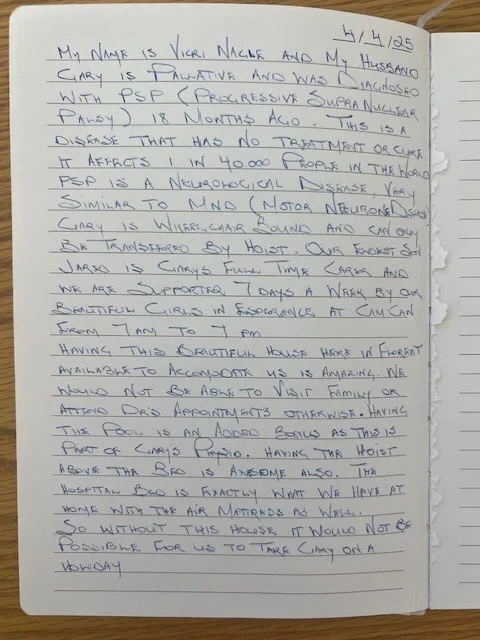 4/4/25
MY NAME IS VICKI NAGLE AND MY HUSBAND
GARY IS PALLATIVE AND WAS DIAGNOSED
WITH PSP (PROGRESSIVE SUPRA NUCLEAR
PALSY) 18 MONTHS AGO. THIS IS A
DISEASE THAT HAS NO TREATMENT OR CURE
IT AFFECTS 1 IN 40 000 PEOPLE IN THE WORLD
PSP IS A NEUROLOGICAL DISEASE, VERY
SIMILAR TO MND (MOTOR NEURONE DISEASE
GARY IS WHEELCHAIR BOUND AND CAN ONLY
BE TRANSFERED BY HOIST. OUR ELDEST SON
JARED IS GARYS FULL TIME CARER AND
WE ARE SUPPORTED 7 DAYS A WEEK BY OUR
BEAUTIFUL GIRLS IN ESPERANCE AT CAM CAN
FROM 7 AM TO 7 PM
HAVING THIS BEAUTIFUL HOUSE HERE IN FLOREAT
AVAILABLE TO ACCOMODATE US IS AMAZING. WE
WOULD NOT BE ABLE TO VISIT FAMILY OR
ATTEND DR'S APPOINTMENTS OTHERWISE. HAVING
THE POOL IS AN ADDED BONUS AS THIS IS
PART OF GARY'S PHYSIO. HAVING THE HOIST
ABOVE THE BED IS AWESOME ALSO. THE
HOSPITAL BED IS EXACTLY WHAT WE HAVE AT
HOME WITH THE AIR MATRESS AS WELL.
SO WITHOUT THIS HOUSE IT WOULD NOT BE
POSSIBLE FOR US TO TAKE GARY ON A
HOLIDAY